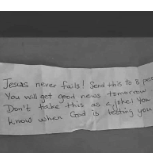 Jesus never fails! Send this to 8 peo
You will get good news tomorrow
Don't take this as a joke! You
know when God is testing you